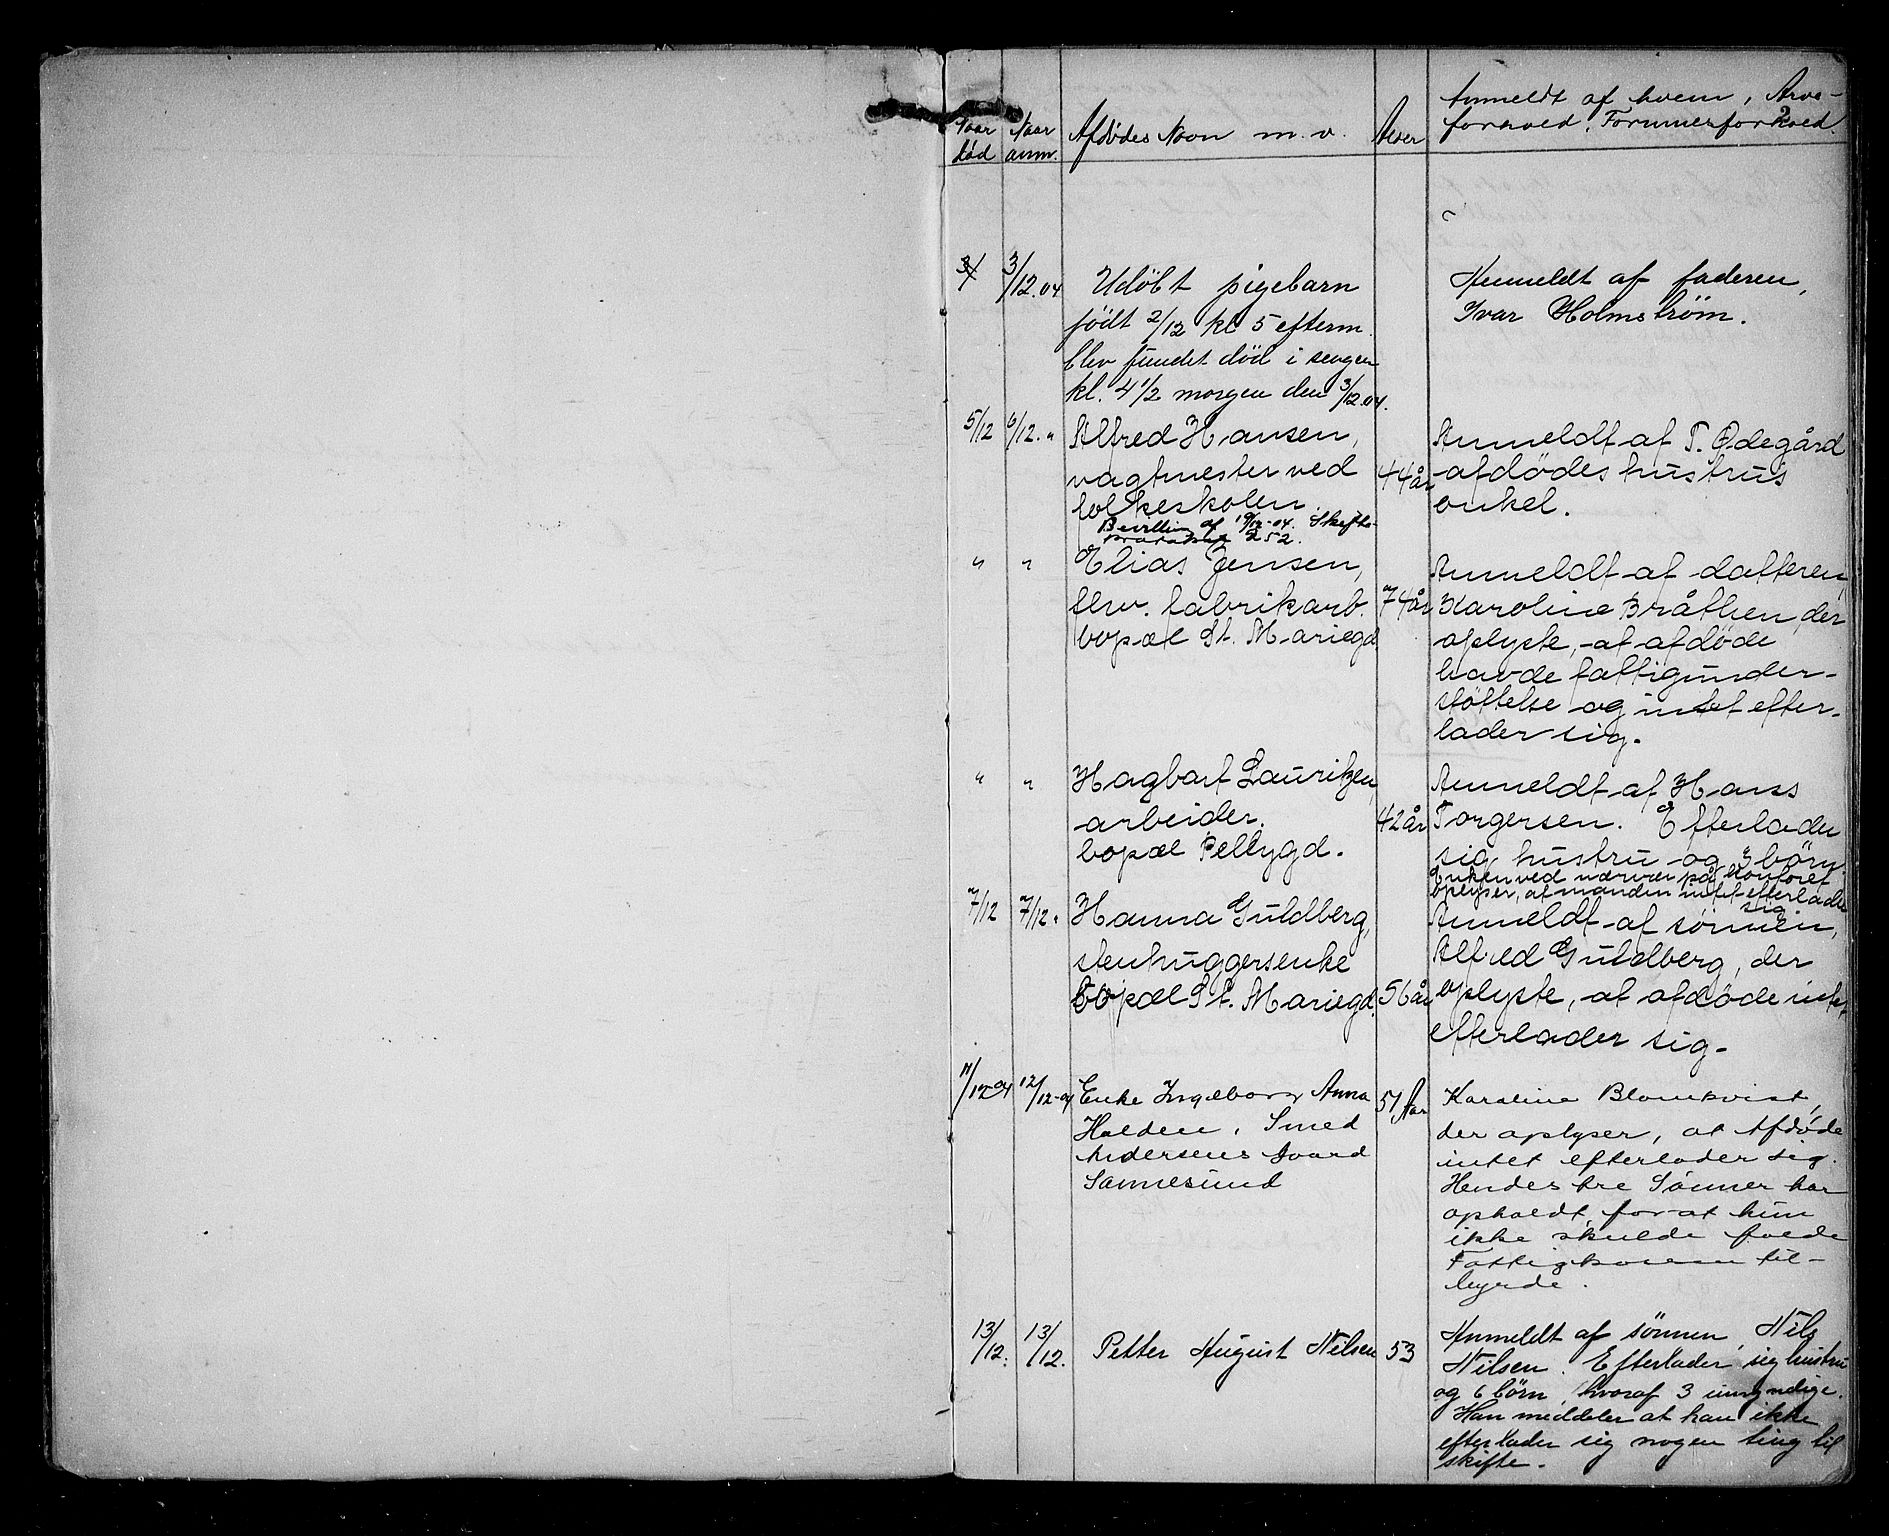 Naar død | Naar anm. | Afdødes Navn m. v. | Alder | Anmeldt af hvem, Arve-
forhold, Formuesforhold.
2
3/ | 3/12.04 | Udöbt pigebarn | Anmeldt af faderen,
födt 2/12 kl 5 efterm. | Ivar Holmström.
blev fundet död i sengen
kl. 4 1/2 morgen den 3/12.04.
5/12 | 6/12. " | Alfred Hansen, | Anmeldt af T. Ødegård
vagtmester ved | 44 år | afdödes hustrus
folkeskolen. | onkel.
Bevilling af 19/12-04. Skifte-
252.
" | " | Elias Jensen, | Anmeldt af datteren
fhv. fabrikarb. | 74 år | Karoline Bråthen, der
bopæl St. Mariegd. | oplyste, at afdöde
havde fattigunder-
stöttelse og intet efter-
lader sig.
" | " | Hagbart Lauritzen, | Anmeldt af Hans
arbeider. | 42 år | Torgersen. Efterlader
bopæl Pellygd. | sig hustru og 3 börn.
Enken ved nærvær på kontoret
oplyser, at manden intet efterlader
sig.
7/12 | 7/12. " | Hanna Guldberg, | Anmeldt af sönnen,
stenhuggersenke | Alfred Guldberg, der
bopæl St. Mariegd. | 56 år | oplyste, at afdöde intet
efterlader sig.
11/12-04 | 12/12-04 | Enke Ingeborg Anna | 51 Aar | Karoline Blomkvist,
Halden, Smed | der oplyser, at Afdøde
Andersens Gaard | intet efterlader sig.
Sannesund | Hendes tre Sønner har
opholdt, for at hun
ikke skulde falde
Fattigkassen til-
byrde.
13/12. | 13/12. | Petter August Nilsen | 53 | Anmeldt af sönnen, Nils
Nilsen. Efterlader sig hustru
og 6 börn, hvoraf 3 umyndige.
Han meddeler at han ikke
efterlader sig nogen ting til
skifte.